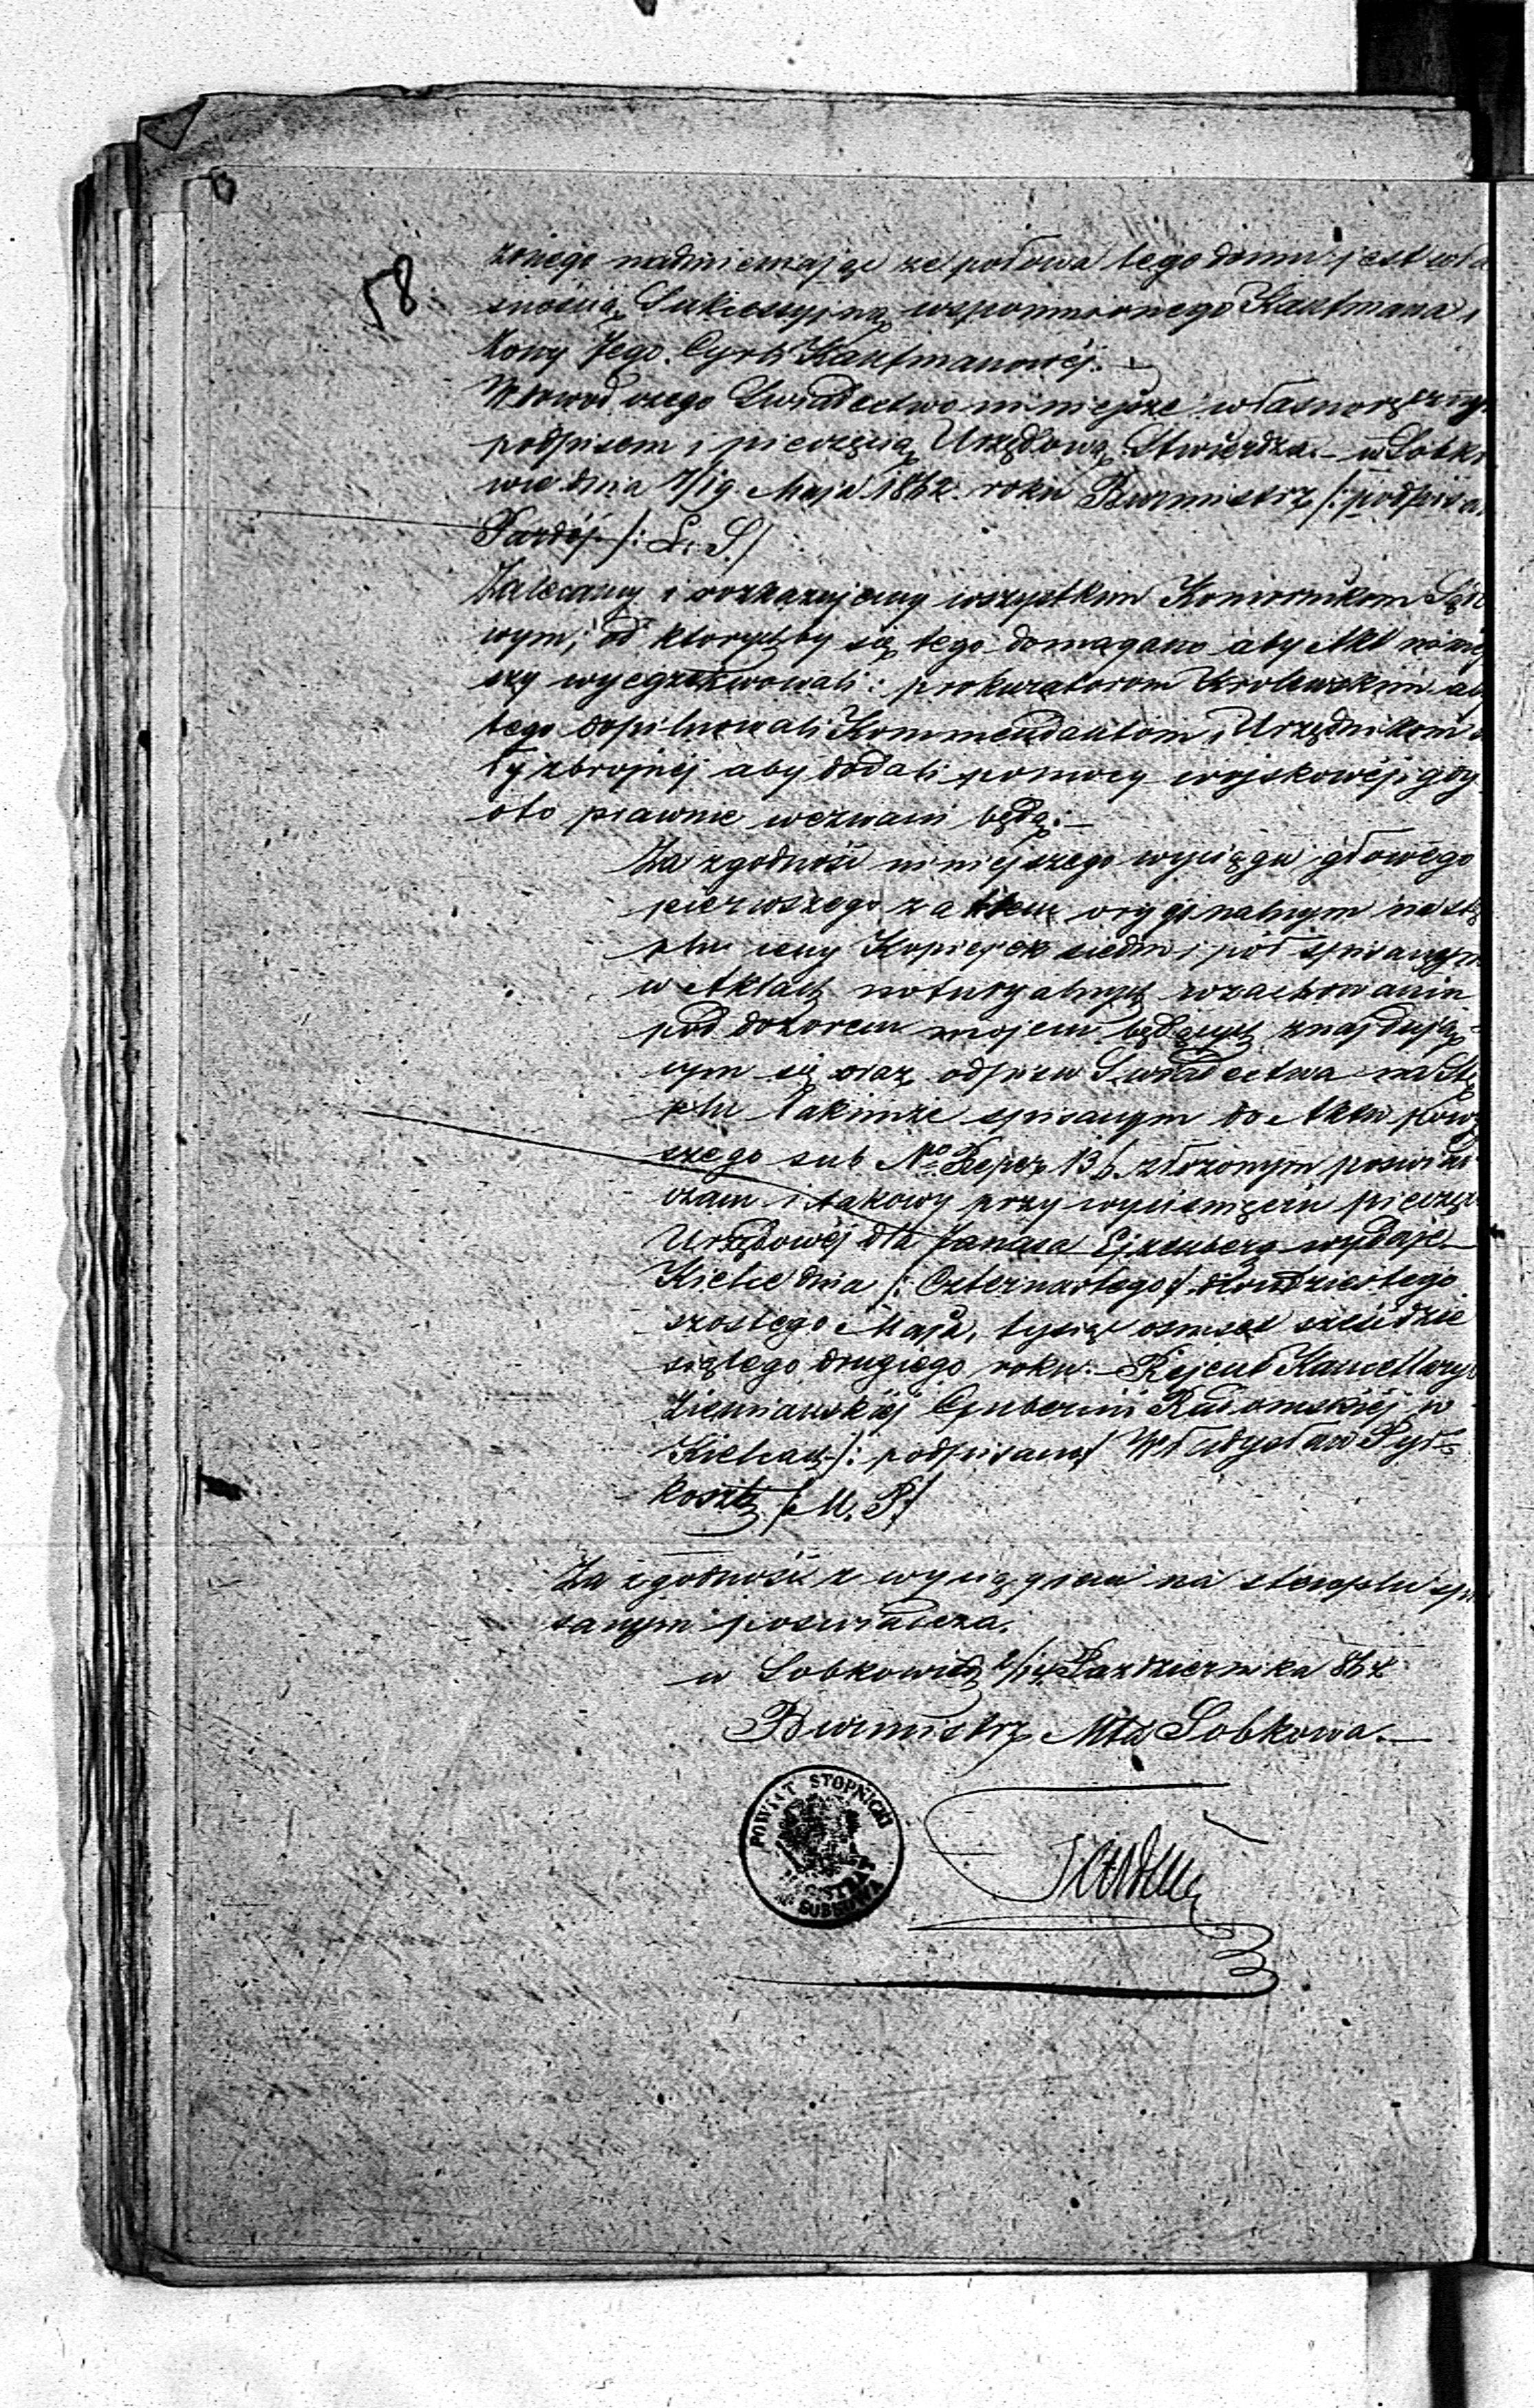 58.
żonego nadmieniając że połowa tego domu jest wła
snością Sukcessyjną wspomnionego Kaufmana i
żony Jego Cyrli Kaufmanowéj.
W dowód czego Swiadectwo niniejsze własnoręcznym
podpisem i pieczęcią Urzędową Stwierdza. w Sobko
wie dnia 7/19 Maja 1862. roku Burmistrz /: podpisa
/: L. S./
Zalecamy i rozkazujemy wszystkim Komornikom Sądo
wym, od ktorychby się tego domagano aby Akt niniej
szy wyegzekwowali: prokuratorom Krolewskim aby
tego dopilnowali Kommendantom i Urzędnikom
ły zbrojnéj aby dodali pomocy wojskowéj gdy
oto prawnie wezwani będą.
Za zgodność niniejszego wyciągu głowego
pierwszego z aktem oryginalnym na stę
plu ceny Kopiejek siedm i pół spisanym
w Aktach notaryalnych w zachowaniu
pod dozorem mojem będących znajdują
cym się oraz odpisu Swiadectwa na Stę
plu takimże spisanym do Aktu powy
szego sub No Reper. 136 złożonym poswiad
czam i takowy przy wyciśnięciu pieczęci
Urzędowéj dla Janasa Ejzenberg wydaje
Kielce dnia /: Czternastego/ dwudziestego
szostego Maja, tysiąc osmset sześćdzie
siątego drugiego roku. Rejent Kancellaryi
Ziemiańskiéj Gubernii Radomskiéj w
Kielcach /: podpisany/ Władysław
/: M. P./
Za zgodność z wyciągiem na stemplu spi
sanym poswiadcza.
w Sobkowie d 2/14 Pazdziernika 864
Burmistrz Mta Sobkowa.
POWIAT STOPNICKI
SOBKOWA